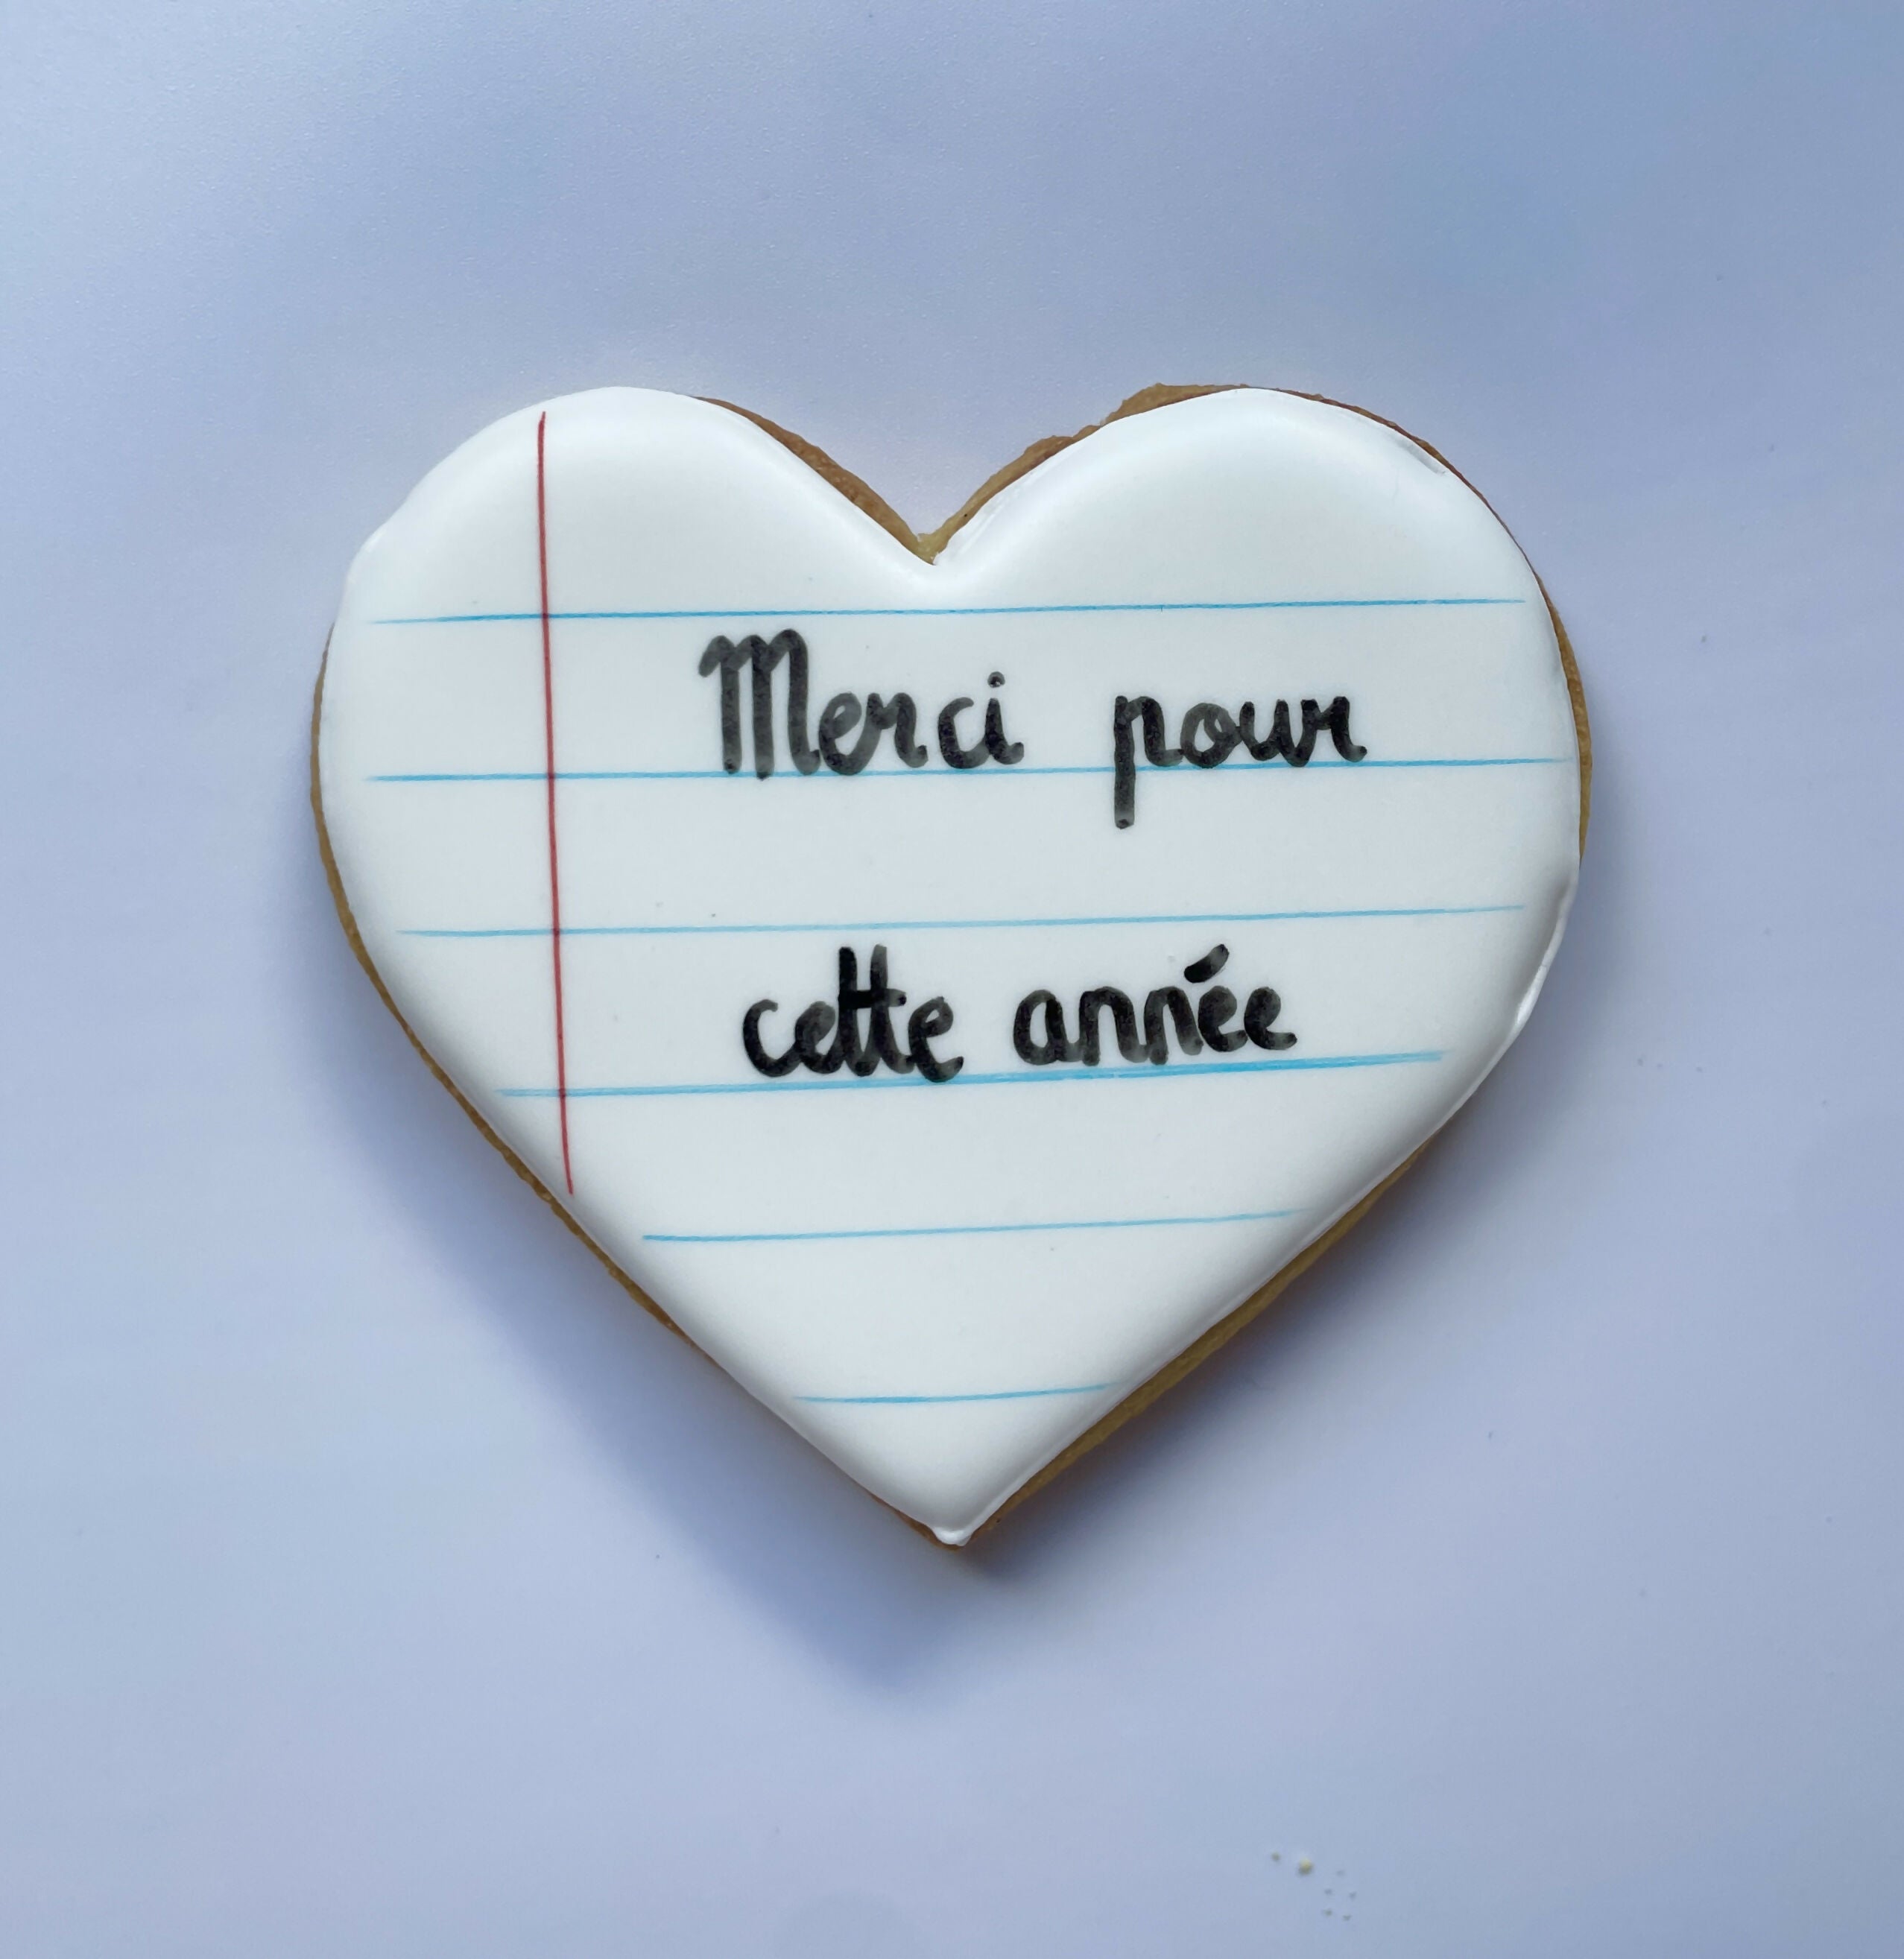 Merci pour
cette année